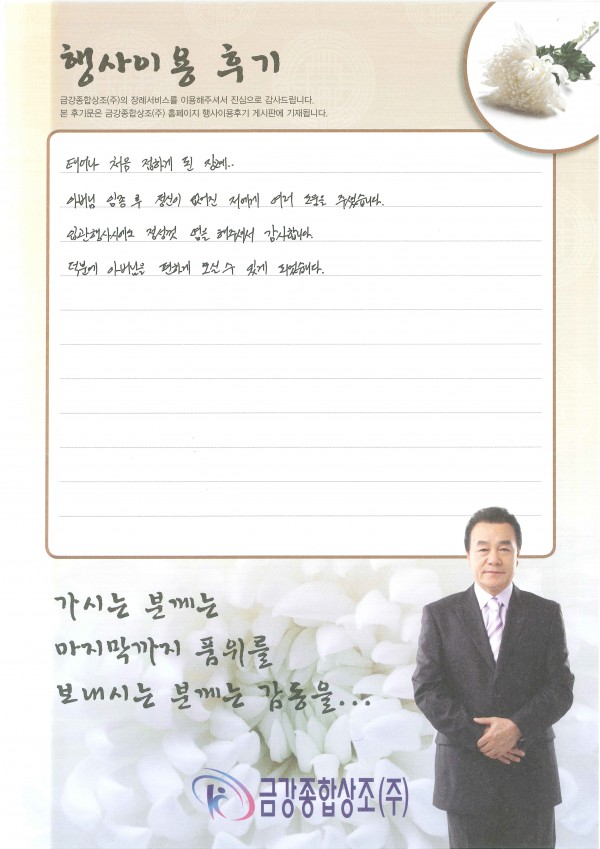 행사이용 후기
금강종합상조(주)의 장례서비스를 이용해주셔서 진심으로 감사드립니다.
본 후기문은 금강종합상조(주) 홈페이지 행사이용후기 게시판에 기재됩니다.
태어나 처음 접하게 된 장례..
아버님 임종 후 정신이 없어진 저에게 여러 도움을 주셨습니다.
입관행사시에도 정성껏 염을 해주셔서 감사합니다.
덕분에 아버님을 편하게 모실수 있게 되었습니다.
가시는 분께는
마지막까지 품위를
보내시는 분께는 감동을...
금강종합상조(주)